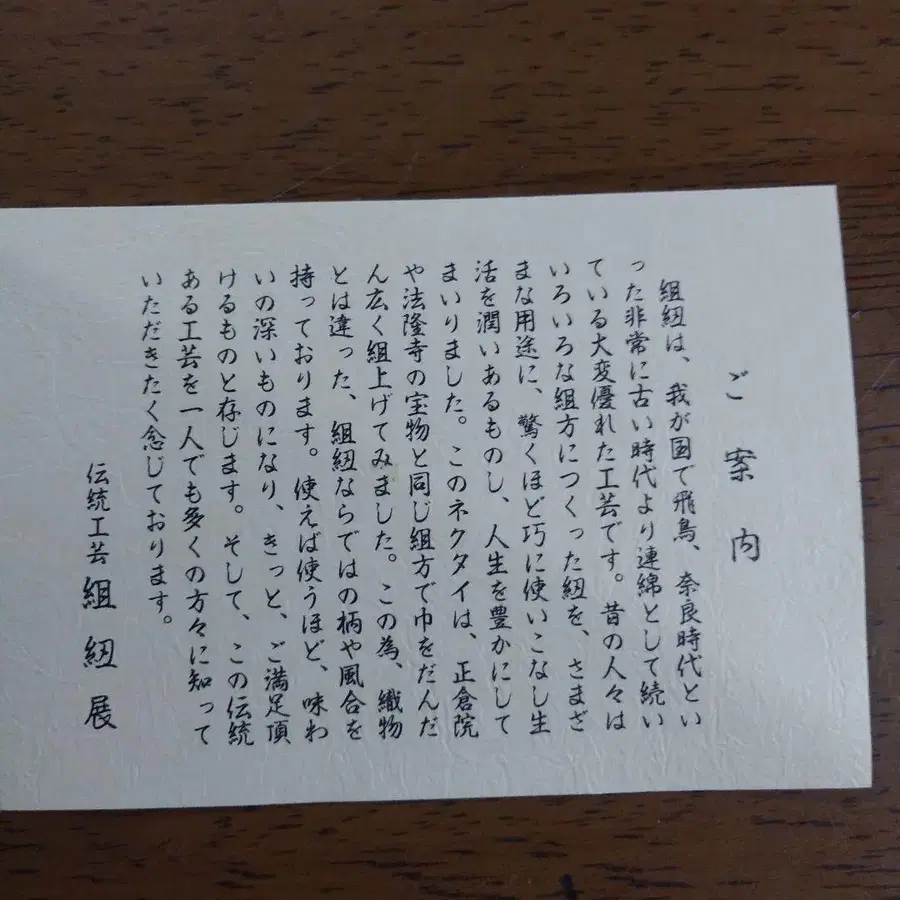 ご案内
組紐は、我が国で飛鳥、奈良時代とい
った非常に古い時代より連綿として続い
ている大変優れた工芸です。昔の人々は
いろいろな組方につくった紐を、さまざ
まな用途に、驚くほど巧に使いこなし生
活を潤いあるものし、人生を豊かにして
まいりました。このネクタイは、正倉院
や法隆寺の宝物と同じ組方で巾をだんだ
ん広く組上げてみました。この為、織物
とは違った、組紐ならではの柄や風合を
持っております。使えば使うほど、味わ
いの深いものになり、きっと、ご満足頂
けるものと存じます。そして、この伝統
ある工芸を一人でも多くの方々に知って
いただきたく念じております。
伝統工芸組紐展